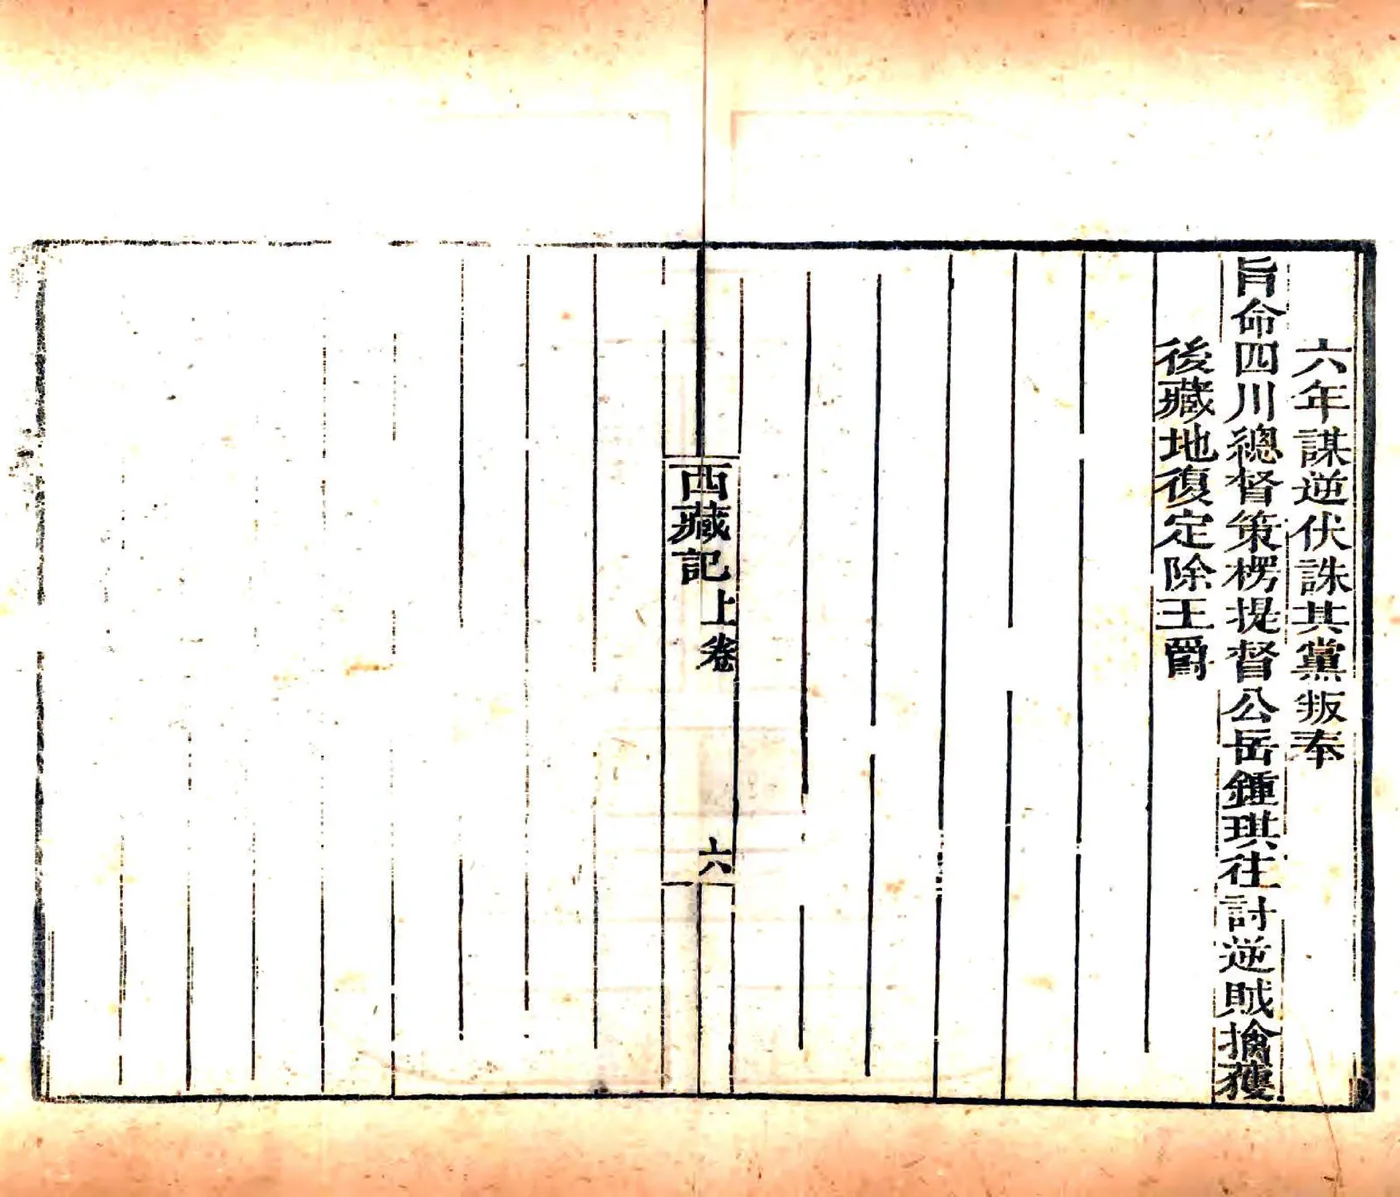 六年謀逆伏誅其黨叛奉
旨命四川總督策楞提督公岳鍾琪往討逆賊擒獲
後藏地復定除王爵
西藏記上卷
六